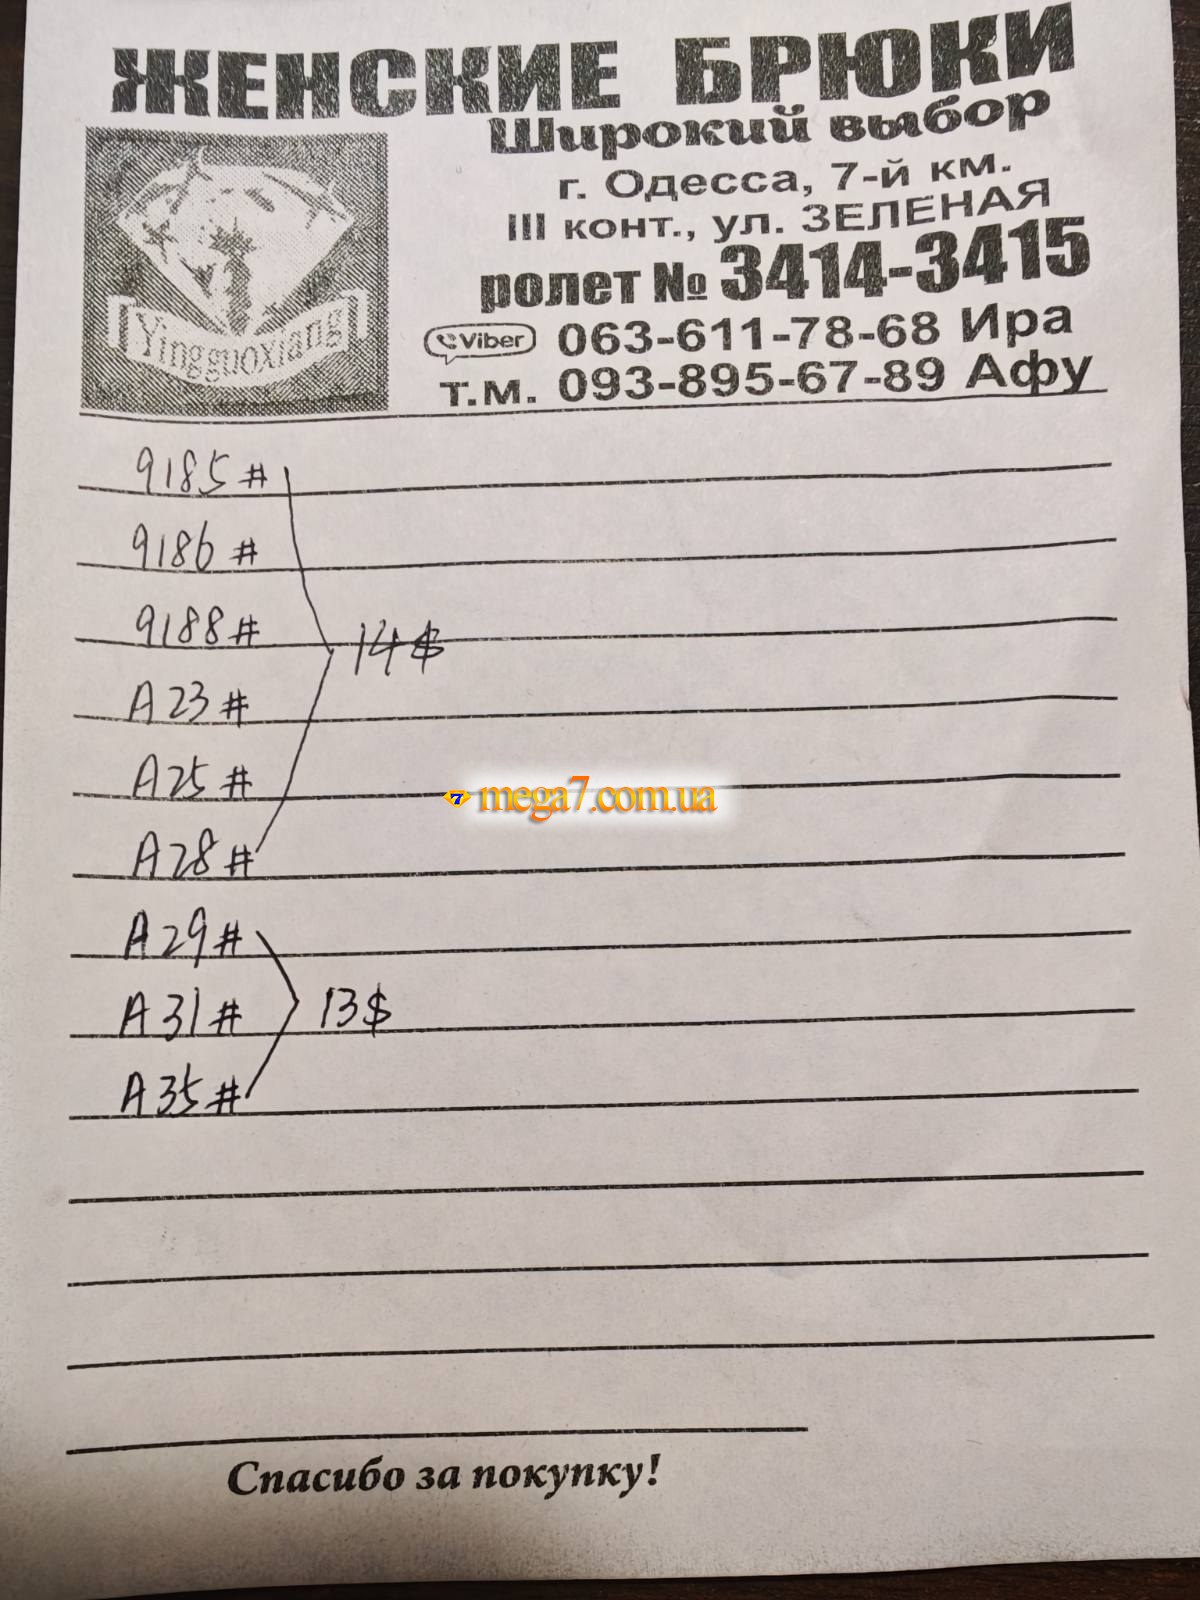 ЖЕНСКИЕ БРЮКИ
Широкий выбор
г. Одесса, 7-й км.
III конт., ул. ЗЕЛЕНАЯ
ролет № 3414-3415
Viber 063-611-78-68 Ира
т.м. 093-895-67-89 Афу
Yingguoxiang
9185#
9186#
9188#
14$
A23#
A25#
mega7.com.ua
A28#
A29#
A31#
13$
A35#
Спасибо за покупку!